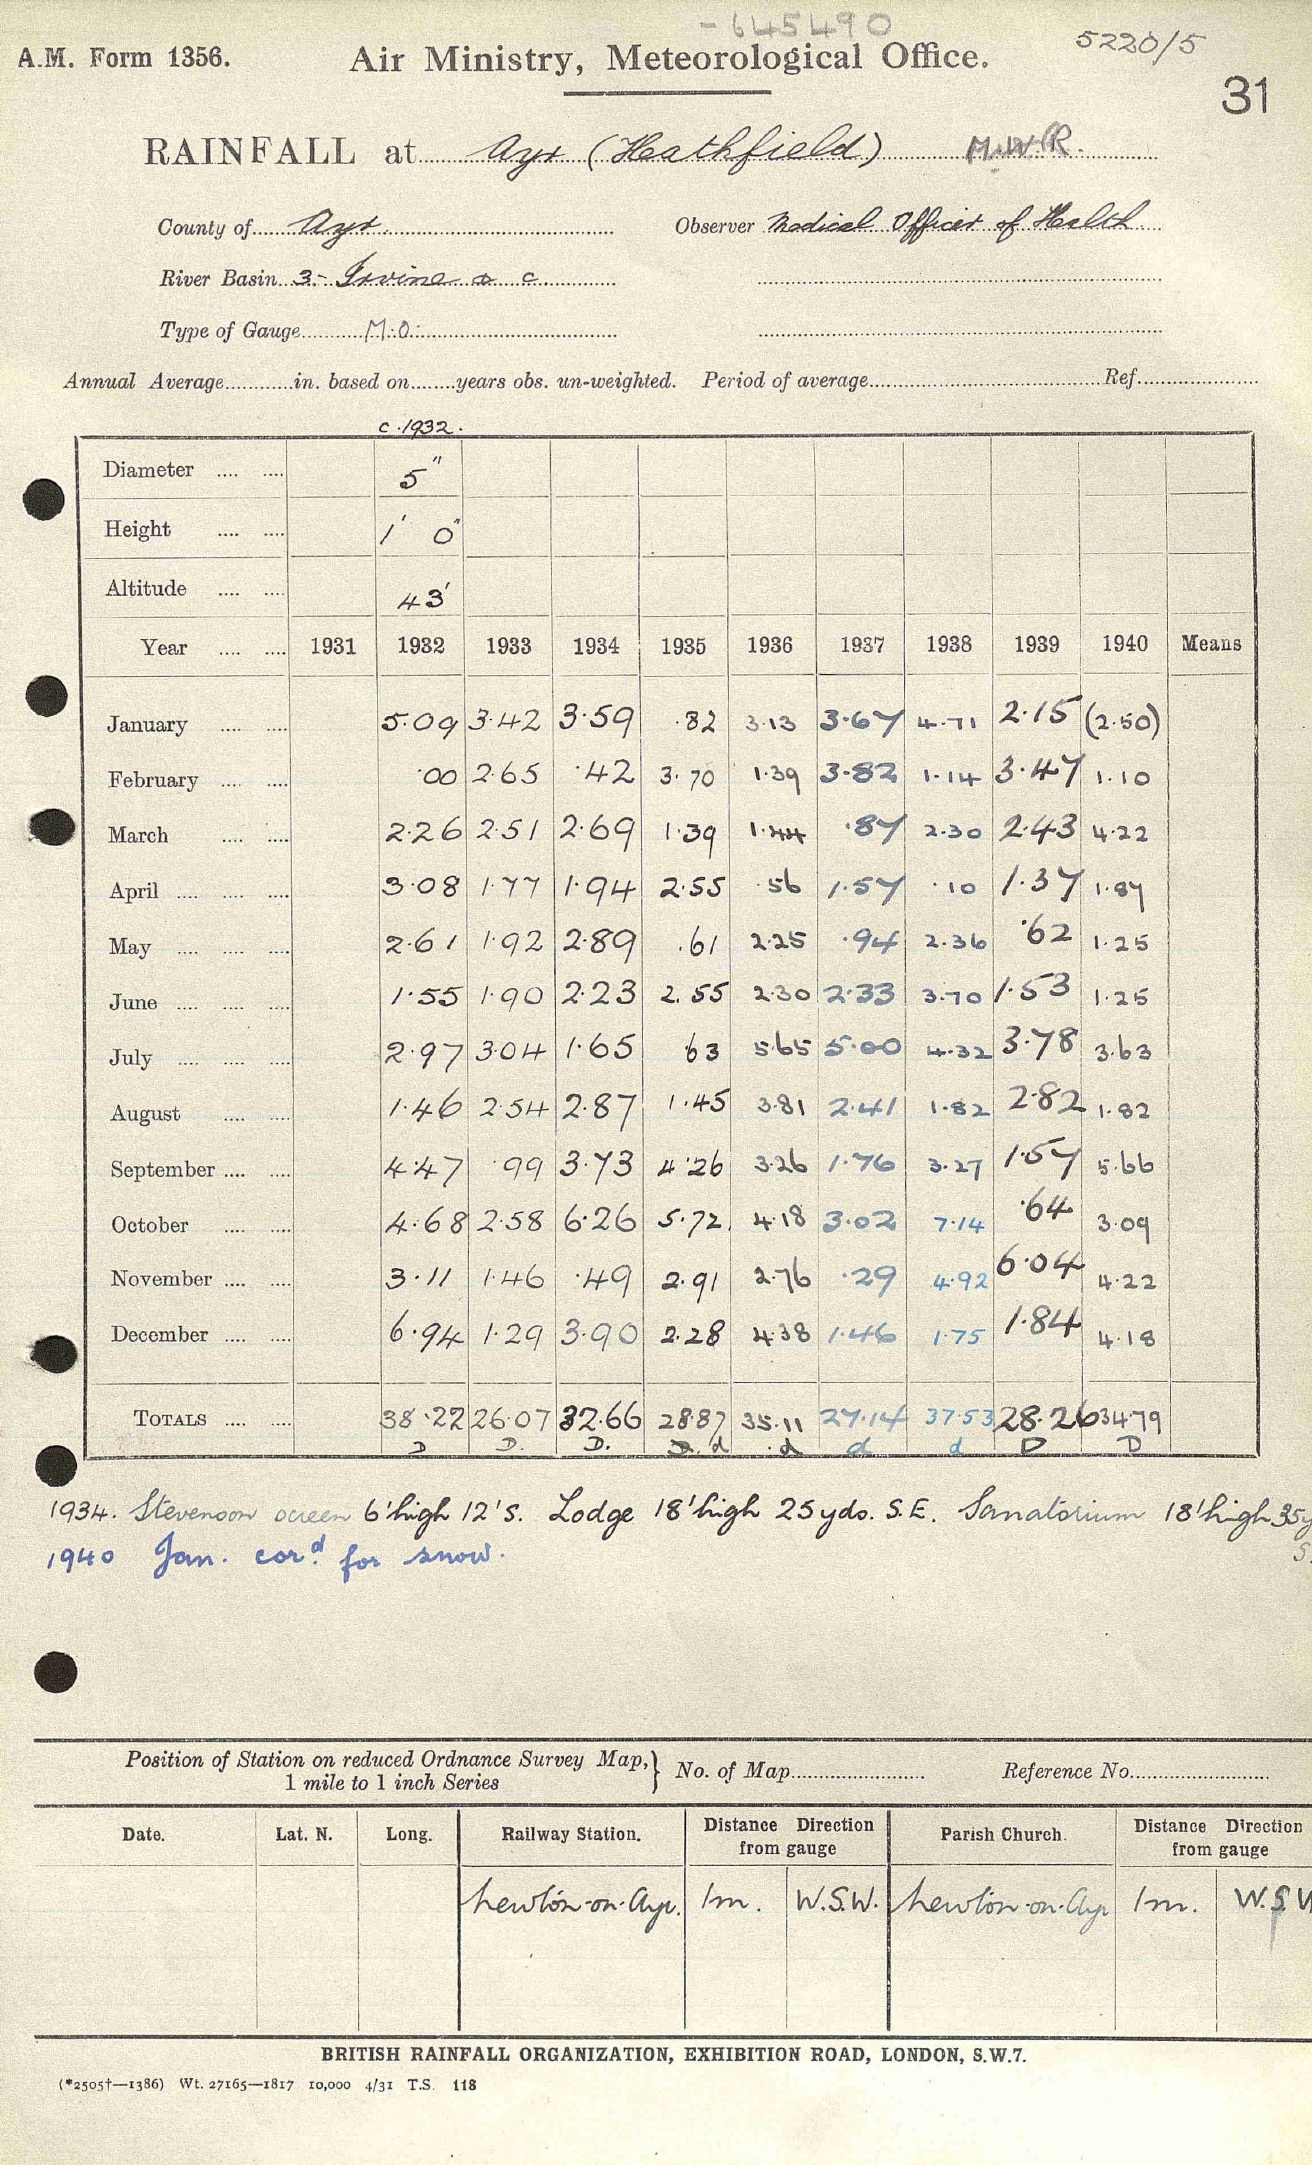 -645490
5220/5
A.M. Form 1356. Air Ministry, Meteorological Office.
31
RAINFALL at Ayr (Heathfield) M.W.R.
County of Ayr. Observer Medical Officer of Health
River Basin 3- Irvine & c
Type of Gauge M.O.
Annual Average in. based on years obs. un-weighted. Period of average Ref.
c.1932.
Diameter 5"
Height 1' 0"
Altitude 43'
Year 1931 1932 1933 1934 1935 1936 1937 1938 1939 1940 Means
January 5.09 3.42 3.59 .82 3.13 3.67 4.71 2.15 (2.50)
February .00 2.65 .42 3.70 1.39 3.82 1.14 3.47 1.10
March 2.26 2.51 2.69 1.39 1.44 .87 2.30 2.43 4.22
April 3.08 1.77 1.94 2.55 .56 1.57 .10 1.37 1.87
May 2.61 1.92 2.89 .61 2.25 .94 2.36 .62 1.25
June 1.55 1.90 2.23 2.55 2.30 2.33 3.70 1.53 1.25
July 2.97 3.04 1.65 .63 5.65 5.00 4.32 3.78 3.63
August 1.46 2.54 2.87 1.45 3.81 2.41 1.82 2.82 1.82
September 4.47 .99 3.73 4.26 3.26 1.76 3.27 1.57 5.66
October 4.68 2.58 6.26 5.72 4.18 3.02 7.14 .64 3.09
November 3.11 1.46 .49 2.91 2.76 .29 4.92 6.04 4.22
December 6.94 1.29 3.90 2.28 4.38 1.46 1.75 1.84 4.18
TOTALS 38.22 26.07 32.66 28.87 35.11 27.14 37.53 28.26 34.79
D D. D. D. d d d d D D
1934. Stevenson screen 6' high 12' S. Lodge 18' high 25 yds. S.E. Sanatorium 18' high 35y
S.
1940 Jan. cord. for snow.
Position of Station on reduced Ordnance Survey Map, 1 mile to 1 inch Series } No. of Map Reference No.
Date. Lat. N. Long. Railway Station. Distance Direction from gauge Parish Church. Distance Direction from gauge
Newton-on-Ayr. 1m. W.S.W. Newton-on-Ayr 1m. W.S.W
BRITISH RAINFALL ORGANIZATION, EXHIBITION ROAD, LONDON, S.W.7.
(*2505†—1386) Wt. 27165—1817 10,000 4/31 T.S. 118